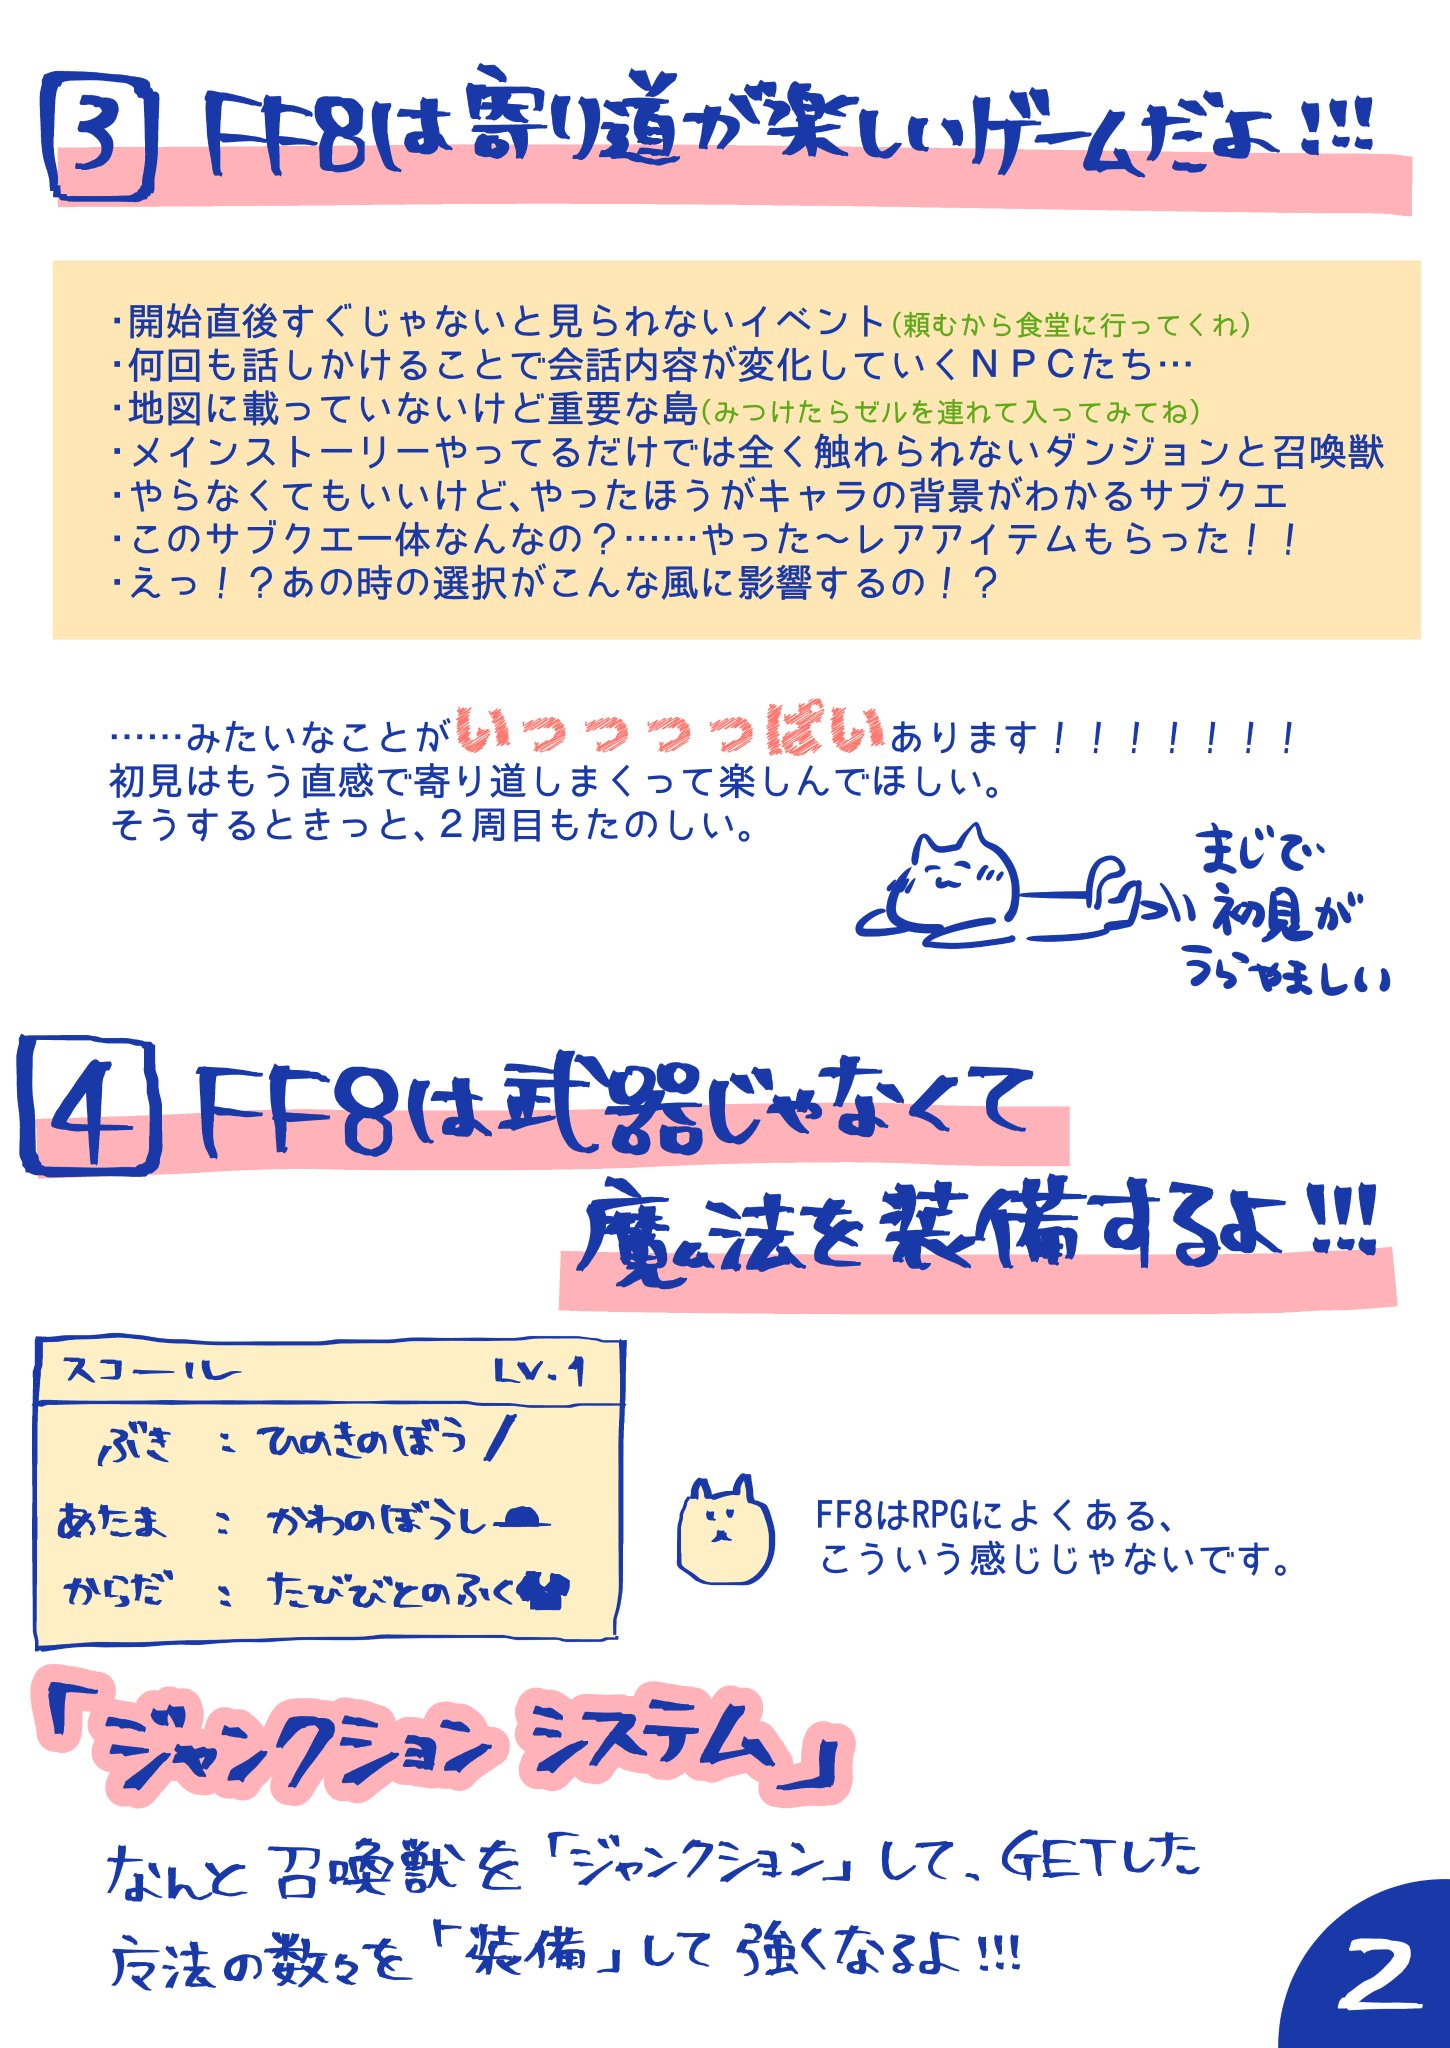 3 FF8は寄り道が楽しいゲームだよ!!!
・開始直後すぐじゃないと見られないイベント(頼むから食堂に行ってくれ)
・何回も話しかけることで会話内容が変化していくＮＰＣたち…
・地図に載っていないけど重要な島(みつけたらゼルを連れて入ってみてね)
・メインストーリーやってるだけでは全く触れられないダンジョンと召喚獣
・やらなくてもいいけど、やったほうがキャラの背景がわかるサブクエ
・このサブクエ一体なんなの？……やった～レアアイテムもらった！！
・えっ！？あの時の選択がこんな風に影響するの！？
……みたいなことがいっっっっぱいあります！！！！！！！
初見はもう直感で寄り道しまくって楽しんでほしい。
そうするときっと、２周目もたのしい。
まじで
初見が
うらやましい
4 FF8は武器じゃなくて
魔法を装備するよ!!!
スコール LV.1
ぶき : ひのきのぼう
あたま : かわのぼうし
からだ : たびびとのふく
FF8はRPGによくある、
こういう感じじゃないです。
「ジャンクション システム」
なんと召喚獣を「ジャンクション」して、GETした
魔法の数々を「装備」して強くなるよ!!!
2